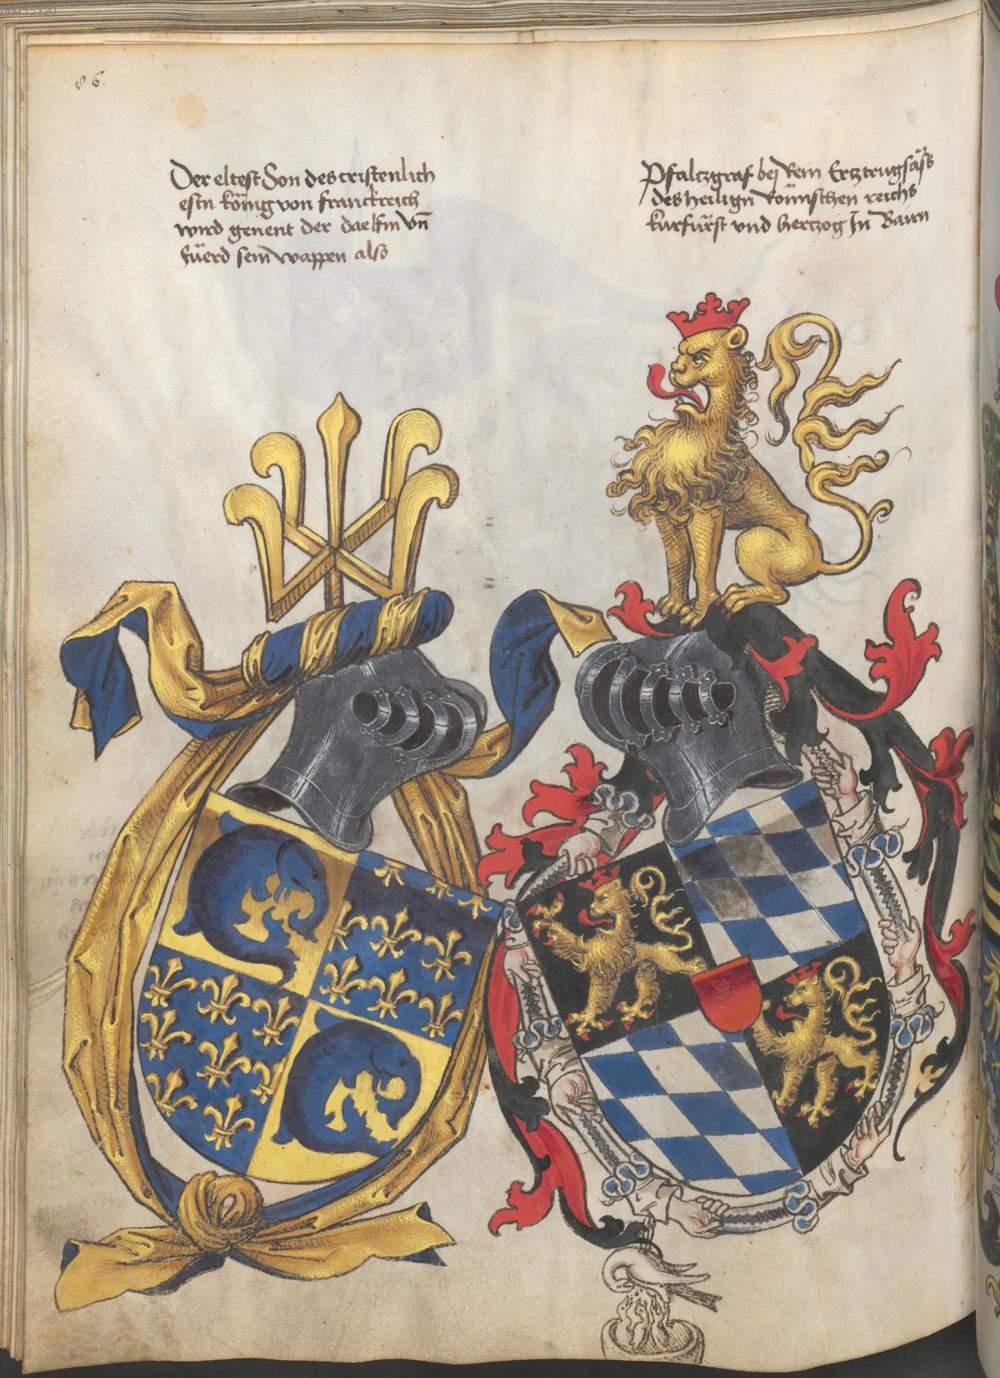 86.
Der eltest Son des cristenlich
estn könig von franckreich
wird genent der daelfin vn̄
füerd sein wappen also
Pfalczgraf bej Rein Ercztrugsäss
des heilign Römischen reichs
kurfürst vnd herczog In Bairn